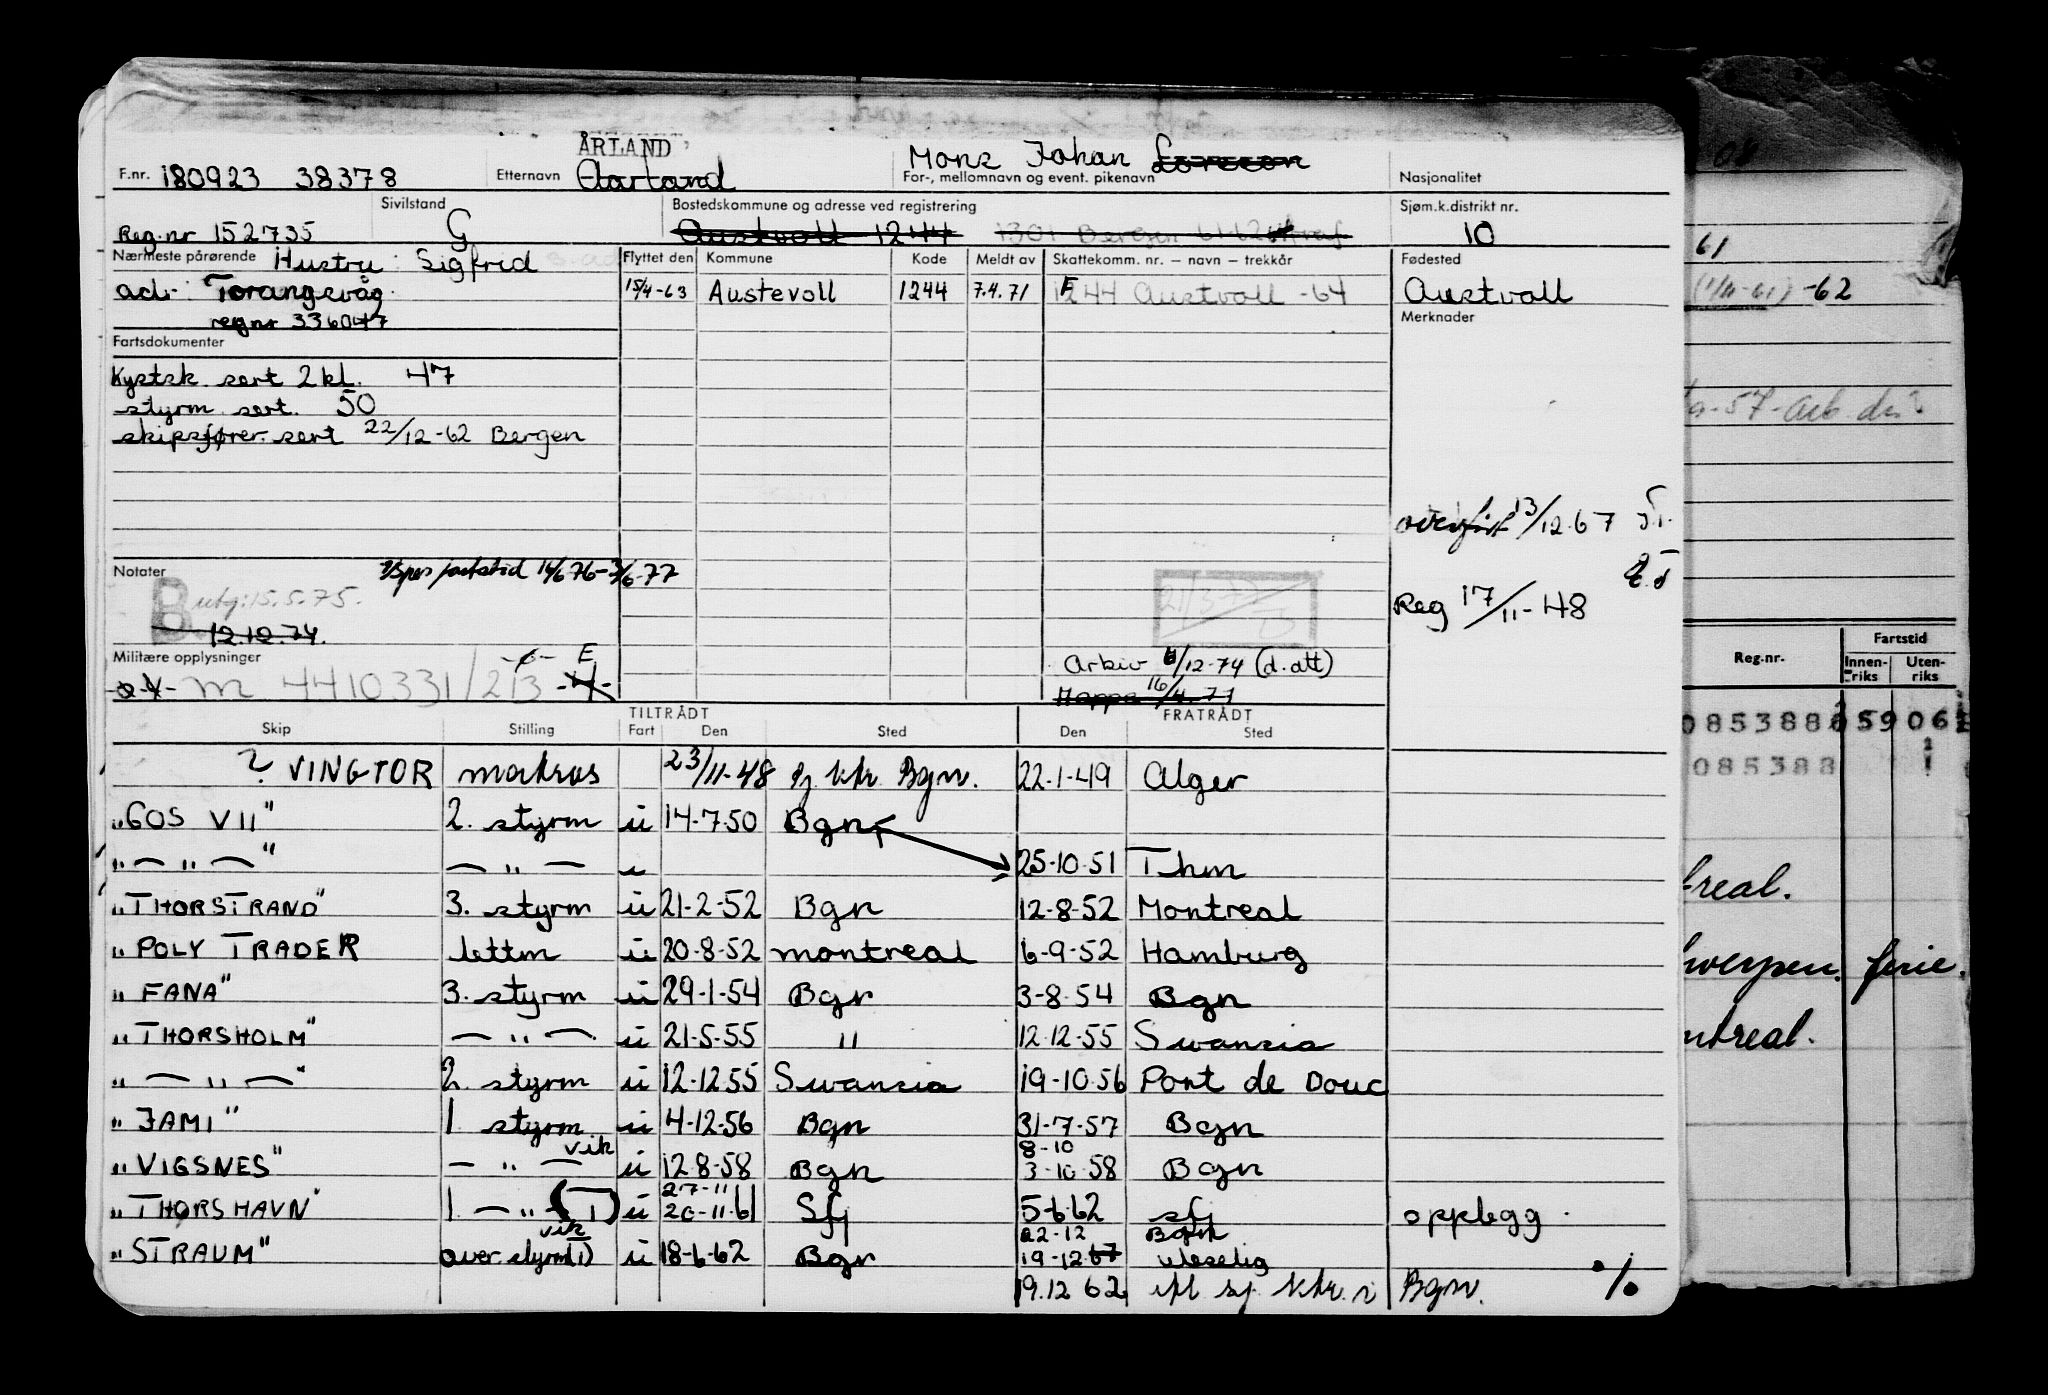 ÅRLAND
F.nr. 180923 38378 Etternavn Aarland Mons Johan
For-, mellomnavn og event. pikenavn Nasjonalitet
Sivilstand Bostedskommune og adresse ved registrering Sjøm.k.distrikt nr.
Reg.nr 152735 G Austvoll 1244 1301 Bergen 61 62 10
Nærmeste pårørende Hustru Sigfrid Flyttet den Kommune Kode Meldt av Skattekomm. nr. – navn – trekkår Fødested
ad. Torangsvåg 15/4-63 Austevoll 1244 7.4.71 1244 Austvoll -64 Austvoll
regnr 336047 Merknader
Fartsdokumenter
Kystsk sert 2 kl. 47
styrm sert. 50
skipsfører sert 22/12-62 Bergen
overført 13/12.67
Notater fartstid 14/6 76-3/6-77
B utg: 15.5.75.
12.12.74.
Reg 17/11-48
Militære opplysninger E Arkiv 6/12-74 (d.att)
M 4410331/213 Mappe 16/4.77
TILTRÅDT FRATRÅDT
Skip Stilling Fart Den Sted Den Sted
? VINGTOR matros 23/11-48 sj. ktr. Bgn. 22-1-49 Alger
"GOS VII" 2. styrm u 14-7-50 Bgn
" — " — " — " — u 25-10-51 Thm
"THORSTRAND" 3. styrm u 21-2-52 Bgn 12-8-52 Montreal
" POLY TRADER lettm u 20-8-52 montreal 6-9-52 Hamburg
" FANA" 3. styrm u 29-1-54 Bgn 3-8-54 Bgn
" THORSHOLM" — " — u 21-5-55 " 12.12-55 Swansia
" — " — " 2. styrm u 12-12-55 Swansia 19-10-56 Port de Bouc
" JAMI " 1 styrm u 4-12-56 Bgn 31-7-57 Bgn
vik 8-10
" VIGSNES" — " — u 12-8-58 Bgn 3-10-58 Bgn
27-11
" THORSHAVN" 1. — " — (I) u 20-11-61 Sfj 5-6-62 sfj opplegg.
vik 22-12 Bgn
" STRAUM" over styrm(I) u 18-6-62 Bgn 19-12-67 uleselig
19.12 62 ifl sj. ktr. i Bgn. %
61
(1/11-61) -62
-57-
Reg.nr. Fartstid
Innen-riks Uten-riks
085388
085388
real.
werpen. ferie.
ntreal.